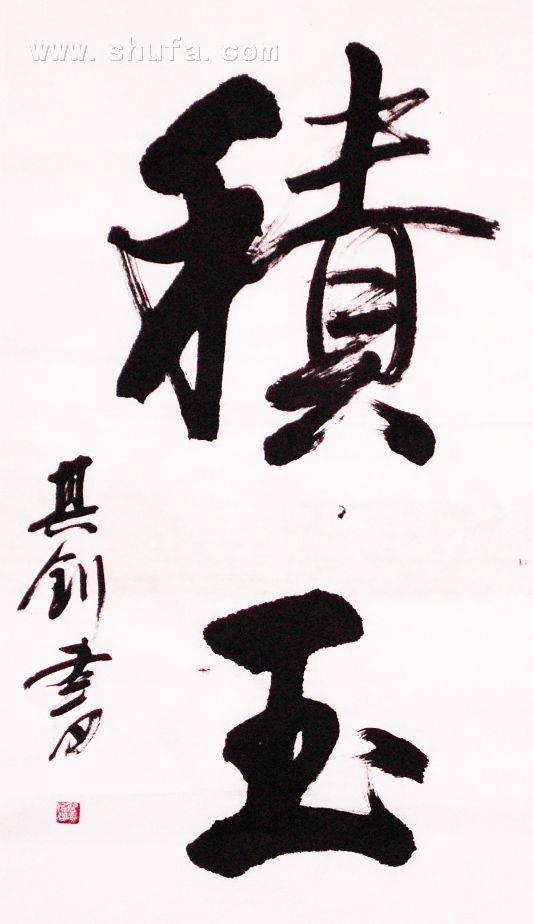 www.shufa.com
積玉
其钊書